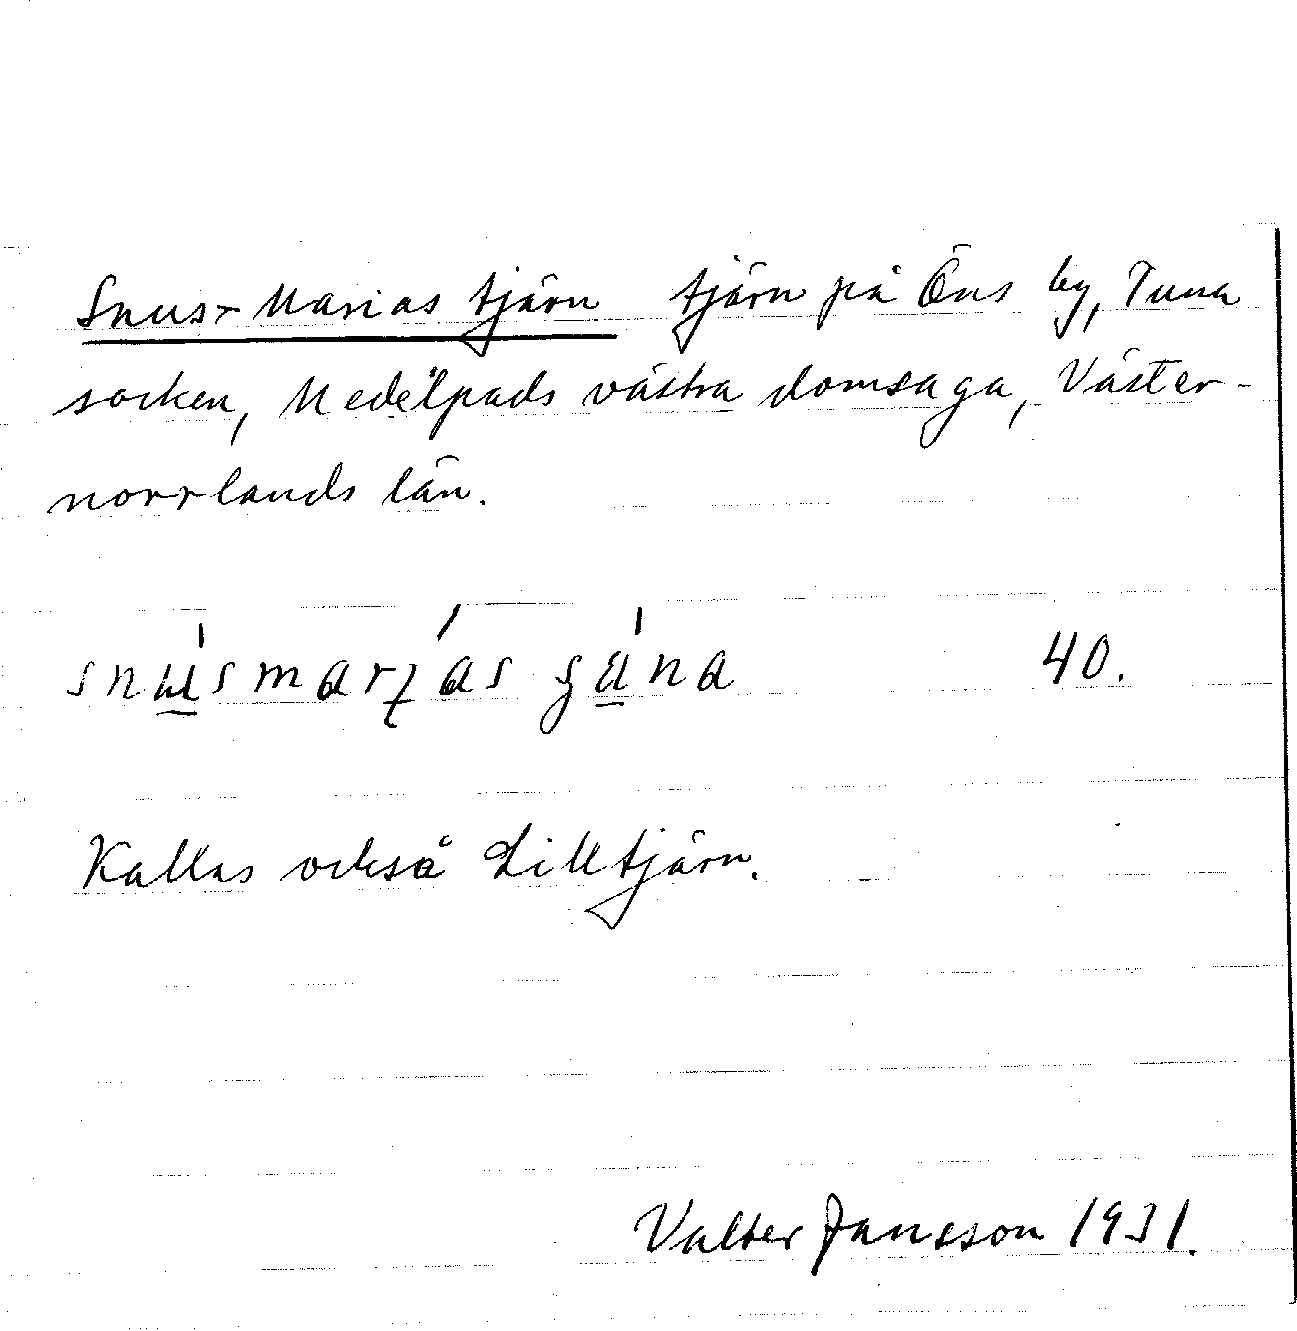 Snus-Marias tjärn tjärn på Öns by, Tuna
socken, Medelpads västra domsaga, Väster-
norrlands län.
40.
Kallas också Lilltjärn.
Valter Jansson 1931.